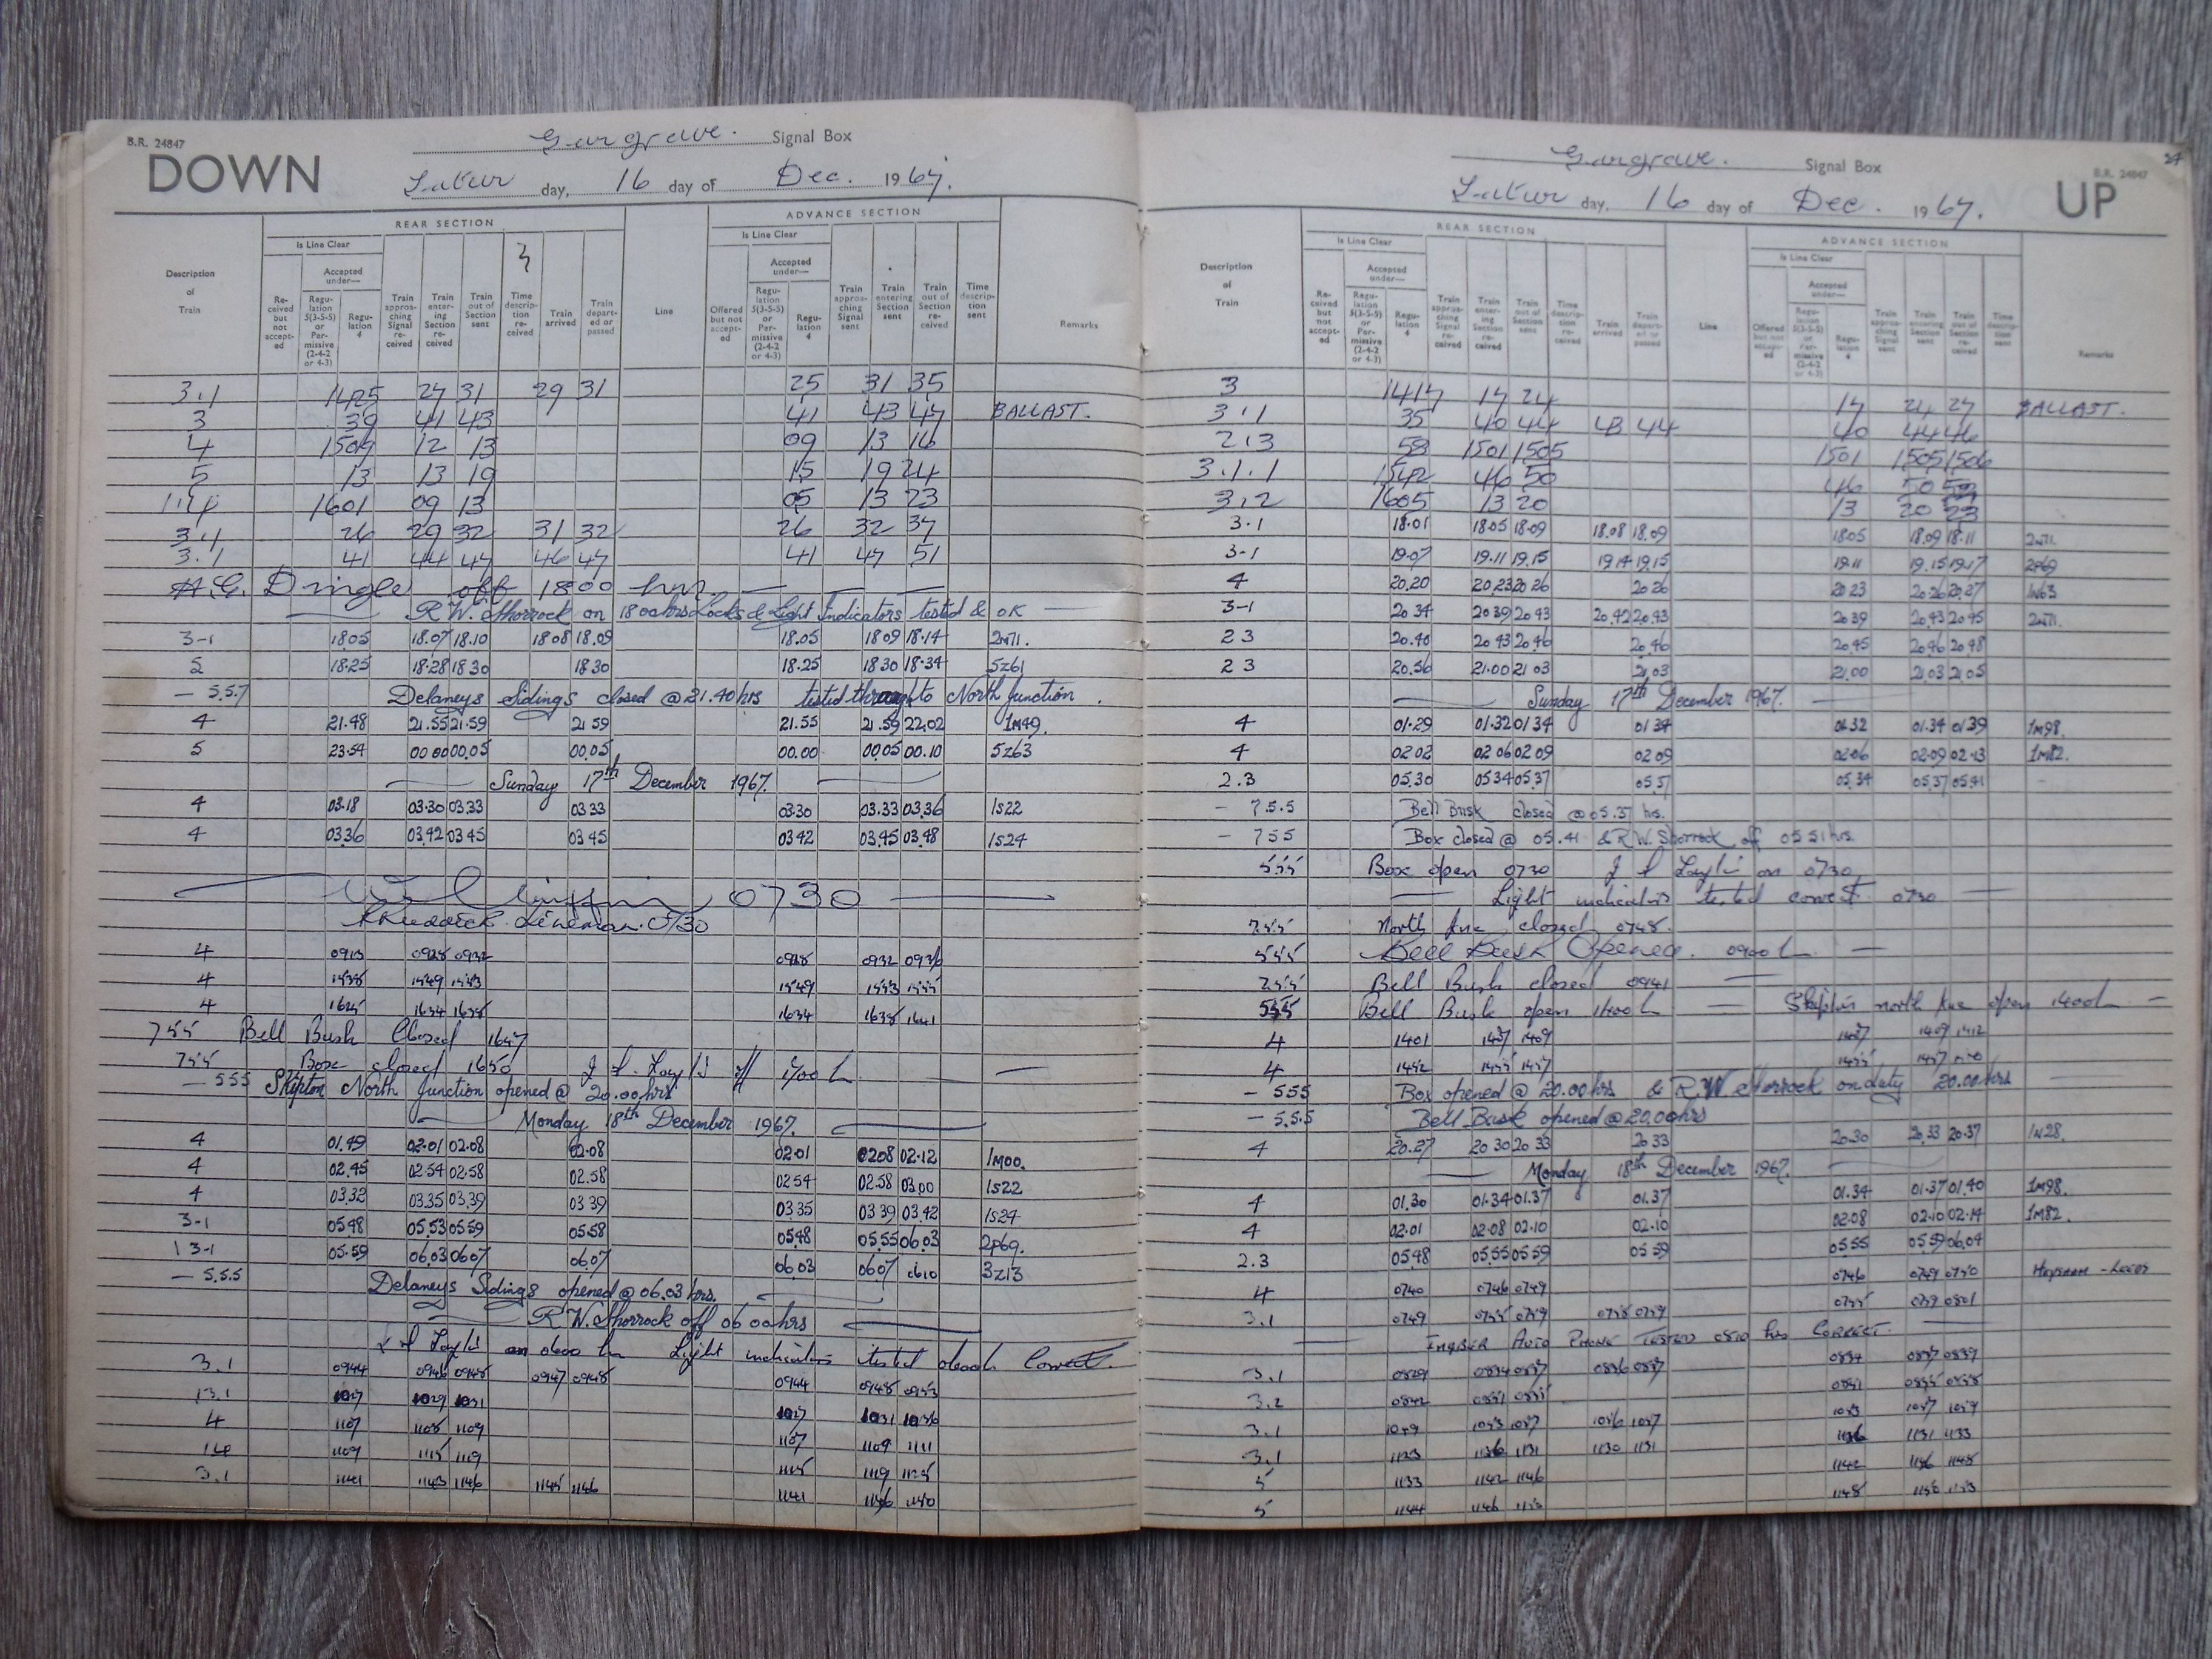 B.R. 24847
DOWN
Gargrave. Signal Box
Satur day, 16 day of Dec. 1967.
REAR SECTION
ADVANCE SECTION
Is Line Clear
Is Line Clear
Description of Train
Received but not accepted
Accepted under—
Regulation 5(3-5-5) or Permissive (2-4-2 or 4-3)
Regulation 4
Train approaching Signal received
Train entering Section received
Train out of Section sent
Time description received
Train arrived
Train departed or passed
Line
Offered but not accepted
Accepted under—
Regulation 5(3-5-5) or Permissive (2-4-2 or 4-3)
Regulation 4
Train approaching Signal sent
Train entering Section sent
Train out of Section received
Time description sent
Remarks
3.1 1425 27 31 29 31 25 31 35
3 39 41 43 41 43 47 BALLAST.
4 1509 12 13 09 13 16
5 13 13 19 15 19 24
1601 09 13 05 13 23
3.1 26 29 32 31 32 26 32 37
3.1 41 44 47 46 47 41 47 51
H.G. Dringle off 1800 hrs
R.W. Shorrock on 1800hrs Locks & Light Indicators tested & OK
3-1 18.05 18.07 18.10 18 08 18.09 18.05 18 09 18.14 2N71.
5 18.25 18.28 18 30 18 30 18.25 18 30 18.34 5Z61
5.5.7 Delaneys Sidings closed @ 21.40 hrs tested through to North Junction.
4 21.48 21.55 21.59 21 59 21.55 21.59 22.02 1M49.
5 23.54 00 00 00.05 00.05 00.00 00.05 00.10 5Z63
Sunday 17th December 1967.
4 03.18 03.30 03.33 03 33 03.30 03.33 03.36 1S22
4 03.36 03.42 03 45 03 45 03 42 03.45 03.48 1S24
0730
R Ruddick. Lineman. 0730
4 0913 0928 0932 0928 0932 0936
4 1538 1549 1553 1549 1553 1555
4 1625 1634 1638 1634 1638 1641
755 Bell Busk Closed 1647
755 Box closed 1650 off 1700 h
555 Skipton North Junction opened @ 20.00hrs
Monday 18th December 1967.
4 01.49 02.01 02.08 02.08 02.01 02 08 02.12 1M00.
4 02.45 02 54 02.58 02.58 02 54 02.58 03.00 1S22
4 03.32 03.35 03.39 03 39 03 35 03 39 03.42 1S24
3-1 05 48 05.53 05 59 05.58 05.48 05.55 06.03 2P69.
1 3-1 05.59 06.03 06 07 06.07 06.03 06 07 0610 3Z13
5.5.5 Delaneys Sidings opened @ 06.03 hrs.
R.W. Shorrock off 06 00hrs
on 0600 hrs Light indicators tested 0600h Correct.
3.1 0944 0946 0948 0947 0948 0944 0948 0953
13.1 1027 1029 1031 1027 1031 1036
4 1107 1108 1109 1107 1109 1111
14 1109 1115 1119 1115 1119 1125
3.1 1141 1143 1146 1145 1146 1141 1146 1150
Gargrave. Signal Box
B.R. 24847
Satur day, 16 day of Dec. 1967.
UP
REAR SECTION
ADVANCE SECTION
Is Line Clear
Is Line Clear
Description of Train
Received but not accepted
Accepted under—
Regulation 5(3-5-5) or Permissive (2-4-2 or 4-3)
Regulation 4
Train approaching Signal received
Train entering Section received
Train out of Section sent
Time description received
Train arrived
Train departed or passed
Line
Offered but not accepted
Accepted under—
Regulation 5(3-5-5) or Permissive (2-4-2 or 4-3)
Regulation 4
Train approaching Signal sent
Train entering Section sent
Train out of Section received
Time description sent
Remarks
3 1417 17 24 17 24 27 BALLAST.
3.1 35 40 44 43 44 40 44 46
2.3 58 1501 1505 1501 1505 1506
3.1.1 1542 46 50 46 50
3.2 1605 13 20 13 20 23
3.1 18.01 18.05 18.09 18.08 18.09 18.05 18.09 18.11 2N71.
3-1 19.07 19.11 19.15 19 14 19.15 19.11 19.15 19.17 2P69
4 20.20 20.23 20 26 20 26 20 23 20.26 20.27 1N63
3-1 20 34 20 39 20 43 20.42 20.43 20 39 20.43 20 45 2N71.
2 3 20.40 20 43 20.46 20.46 20.45 20.46 20 48
2 3 20.56 21.00 21 03 21.03 21.00 21.03 21.05
Sunday 17th December 1967.
4 01.29 01.32 01 34 01 34 01.32 01.34 01.39 1M98.
4 02 02 02 06 02 09 02 09 02.06 02.09 02.13 1M82.
2.3 05.30 05 34 05.37 05.37 05.34 05.37 05.41
7.5.5 Bell Busk closed @ 05.37 hrs.
755 Box closed @ 05.41 & R.W. Shorrock off 05 51 hrs.
555 Box open 0730 on 0730
Light indicators tested correct 0730
755 North Junc closed 0748.
555 Bell Busk Opened. 0900 h
755 Bell Busk closed 0941
555 Bell Busk open 1400 h Skipton north Junc open 1400h
4 1401 1407 1409 1407 1409 1412
4 1452 1455 1457 1455 1457 1500
555 Box opened @ 20.00 hrs & R.W Shorrock on duty 20.00 hrs
5.5.5 Bell Busk opened @ 20.00hrs
4 20.27 20 30 20 33 20 33 20.30 20.33 20.37 1N28.
Monday 18th December 1967.
4 01.30 01.34 01.37 01.37 01.34 01.37 01.40 1M98.
4 02.01 02.08 02.10 02.10 02.08 02.10 02.14 1M82.
2.3 05.48 05.55 05 59 05 59 05.55 05.59 06.04
4 0740 0746 0749 0746 0749 0750 HEYSHAM - LEEDS
3.1 0749 0755 0759 0758 0759 0755 0759 0801
AUTO PHONE TESTED 0810 hrs CORRECT.
3.1 0829 0834 0837 0836 0837 0834 0837 0839
3.2 0842 0851 0855 0851 0855 0858
3.1 1049 1053 1057 1056 1057 1053 1057 1059
3.1 1123 1126 1131 1130 1131 1126 1131 1133
5 1133 1142 1146 1142 1146 1148
5 1144 1146 1150 1148 1150 1153